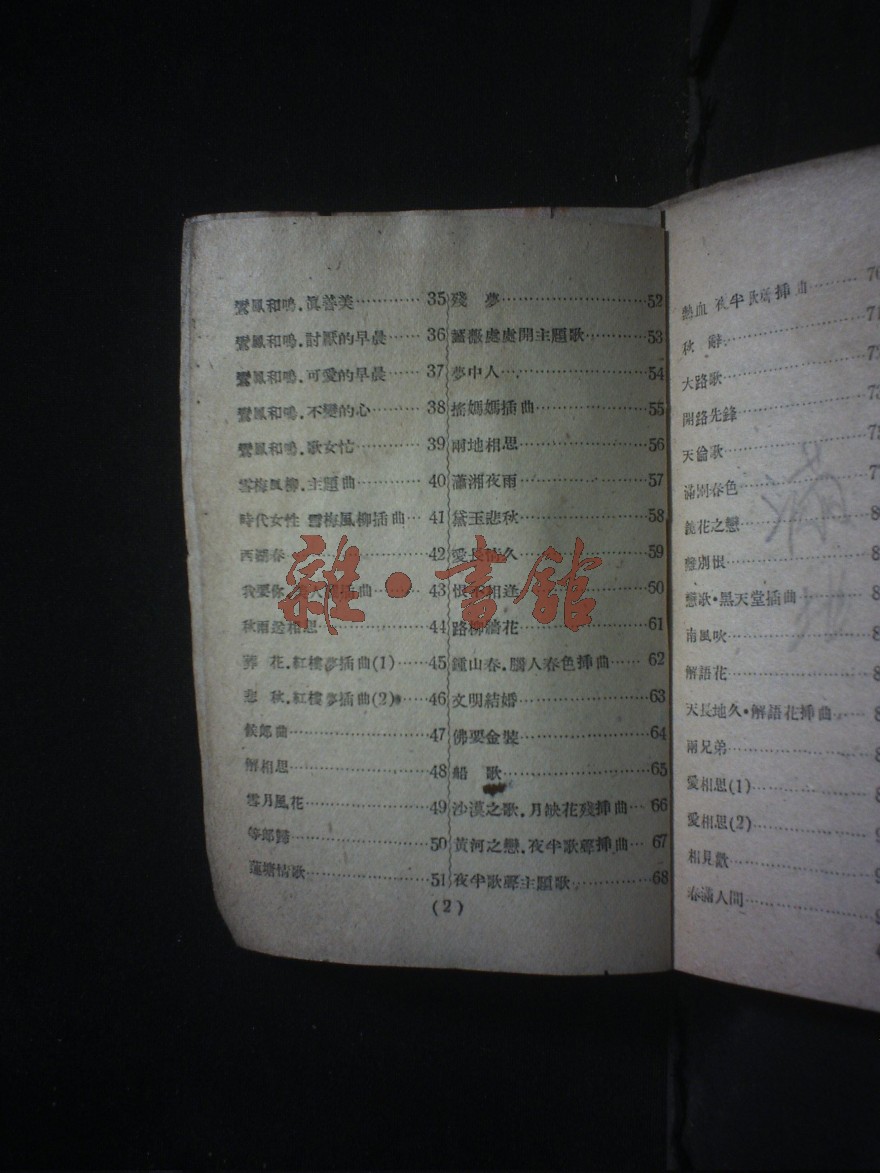 鸞鳳和鳴.眞善美………… 35
鸞鳳和鳴.討厭的早晨…… 36
鸞鳳和鳴.可愛的早晨…… 37
鸞鳳和鳴.不變的心……… 38
鸞鳳和鳴.歌女忙………… 39
雪梅風柳.主題曲………… 40
時代女性 雪梅風柳插曲… 41
西湖春…………………… 42
我要你 插曲…… 43
秋雨送相思……………… 44
葬 花.紅樓夢插曲(1)…… 45
悲 秋.紅樓夢插曲(2)…… 46
候郎曲…………………… 47
解相思…………………… 48
雪月風花………………… 49
等郎歸…………………… 50
蓮塘情歌………………… 51
殘 夢…………………… 52
薔薇處處開主題歌……… 53
夢中人…………………… 54
搖媽媽插曲……………… 55
兩地相思………………… 56
瀟湘夜雨………………… 57
黛玉悲秋………………… 58
愛長情久………………… 59
恨不相逢………………… 60
路柳牆花………………… 61
鍾山春.閙人春色挿曲…… 62
文明結婚………………… 63
佛要金裝………………… 64
船 歌…………………… 65
沙漠之歌.月缺花殘挿曲… 66
黃河之戀.夜半歌聲挿曲… 67
夜半歌聲主題歌………… 68
(2)
熱血 夜半歌聲挿曲…… 70
秋 辭…………………… 71
大路歌…………………… 72
開路先鋒………………… 73
天倫歌…………………… 75
滿園春色………………… 77
鏡花之戀………………… 8
離別恨…………………… 8
戀歌·黑天堂插曲……… 8
南風吹…………………… 8
解語花…………………… 8
天長地久·解語花挿曲… 8
兩兄弟…………………… 8
愛相思(1)……………… 8
愛相思(2)……………… 9
相見歡…………………… 9
春滿人間………………… 9
雜·書館